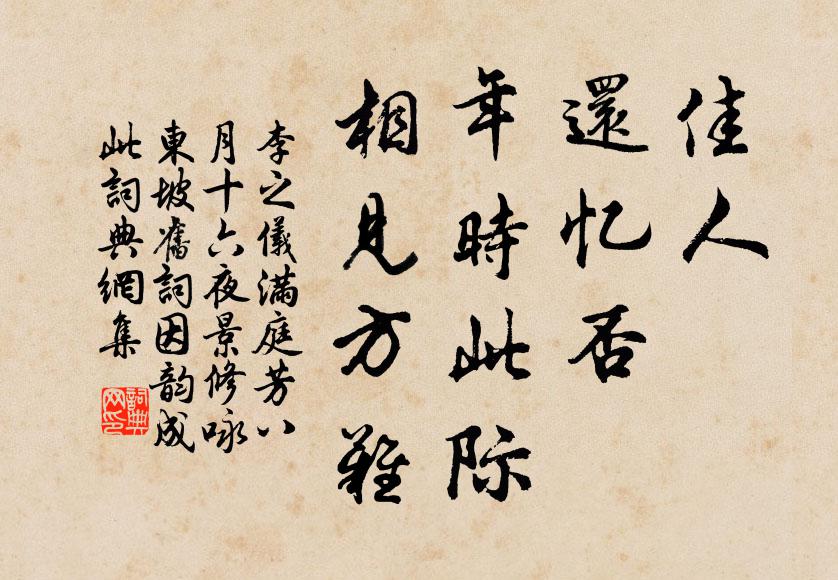 佳人
還忆否
年時此际
相見方難
李之儀满庭芳八
月十六夜景修咏
東坡舊詞因韵成
此詞典網集
詞典网印